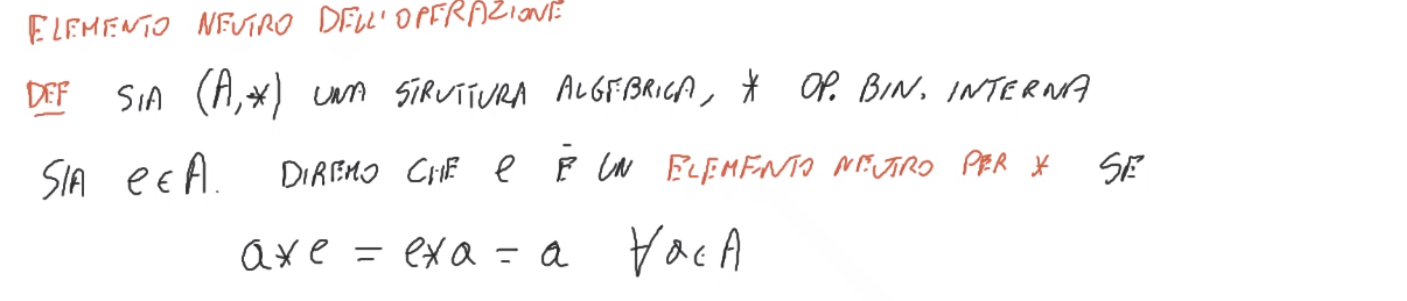 ELEMENTO NEUTRO DELL'OPERAZIONE
DEF SIA (A,*) UNA STRUTTURA ALGEBRICA, * OP. BIN. INTERNA
SIA e∈A. DIREMO CHE e È UN ELEMENTO NEUTRO PER * SE
a*e = e*a = a ∀a∈A